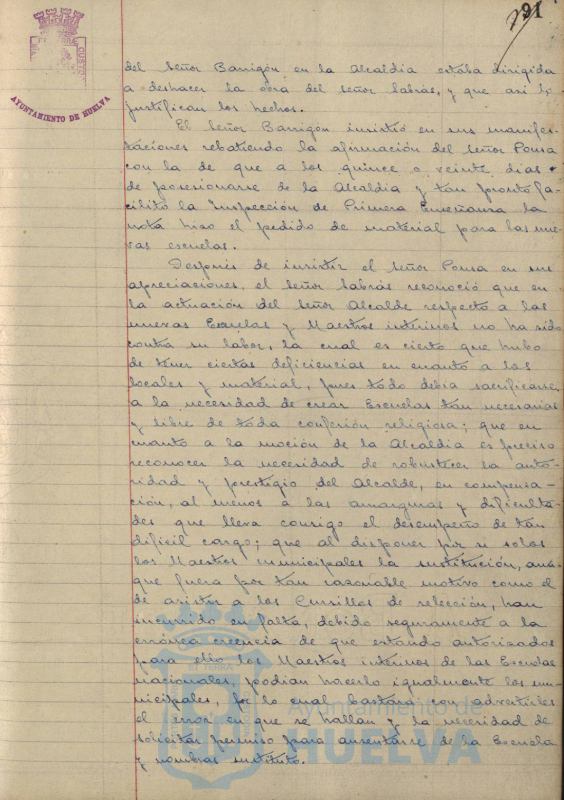 91
AYUNTAMIENTO DE HUELVA
del Señor Barrigón en la Alcaldia estaba dirigida
a deshacer la obra del señor Labrás, y que asi lo
justifican los hechos.
El Señor Barrigón insistió en sus manifes-
taciones rebatiendo la afirmación del señor Ponsa
con la de que a los quince o veinte dias
de posesionarse de la Alcaldia y tan pronto fa-
cilitó la Inspección de Primera Enseñanza la
nota hizo el pedido de material para las nue-
vas escuelas.
Después de insistir el señor Ponsa en sus
apreciaciones, el señor Labrás reconoció que en
la actuación del Señor Alcalde respecto a las
nuevas Escuelas y Maestros interinos no ha sido
contra su labor, la cual es cierto que hubo
de tener ciertas deficiencias en cuanto a los
locales y material, pues todo debia sacrificarse
a la necesidad de crear Escuelas tan necesarias
y libre de toda confesión religiosa; que en
cuanto a la moción de la Alcaldia es preciso
reconocer la necesidad de robustecer la auto-
ridad y prestigio del Alcalde, en compensa-
ción, al menos a las amarguras y dificulta-
des que lleva consigo el desempeño de tan
dificil cargo; que al disponer por si solos
los Maestros municipales la sustitución, aun-
que fuera por tan razonable motivo como el
de asistir a los Cursillos de selección, han
incurrido en falta, debido seguramente a la
errónea creencia de que estando autorizados
para ello los Maestros interinos de las Escuelas
nacionales, podian hacerlo igualmente los mu-
nicipales, por lo cual bastará con advertirles
el error en que se hallan y la necesidad de
solicitar permiso para ausentarse de la Escuela
y nombrar sustituto.
Ayuntamiento de
HUELVA